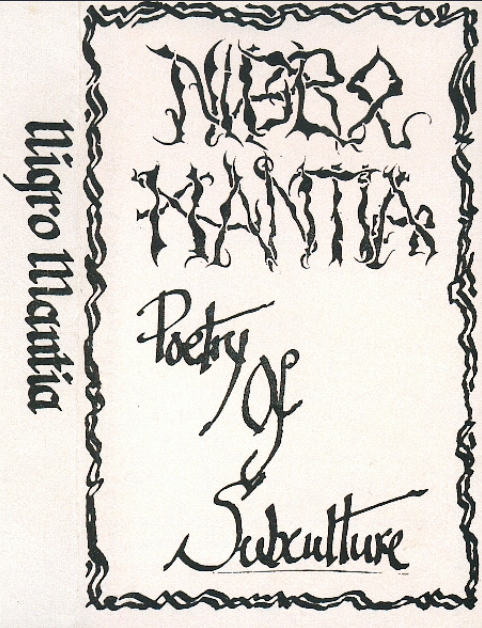 Nigro Mantia
NIGRO
MANTIA
Poetry
Of
Subculture